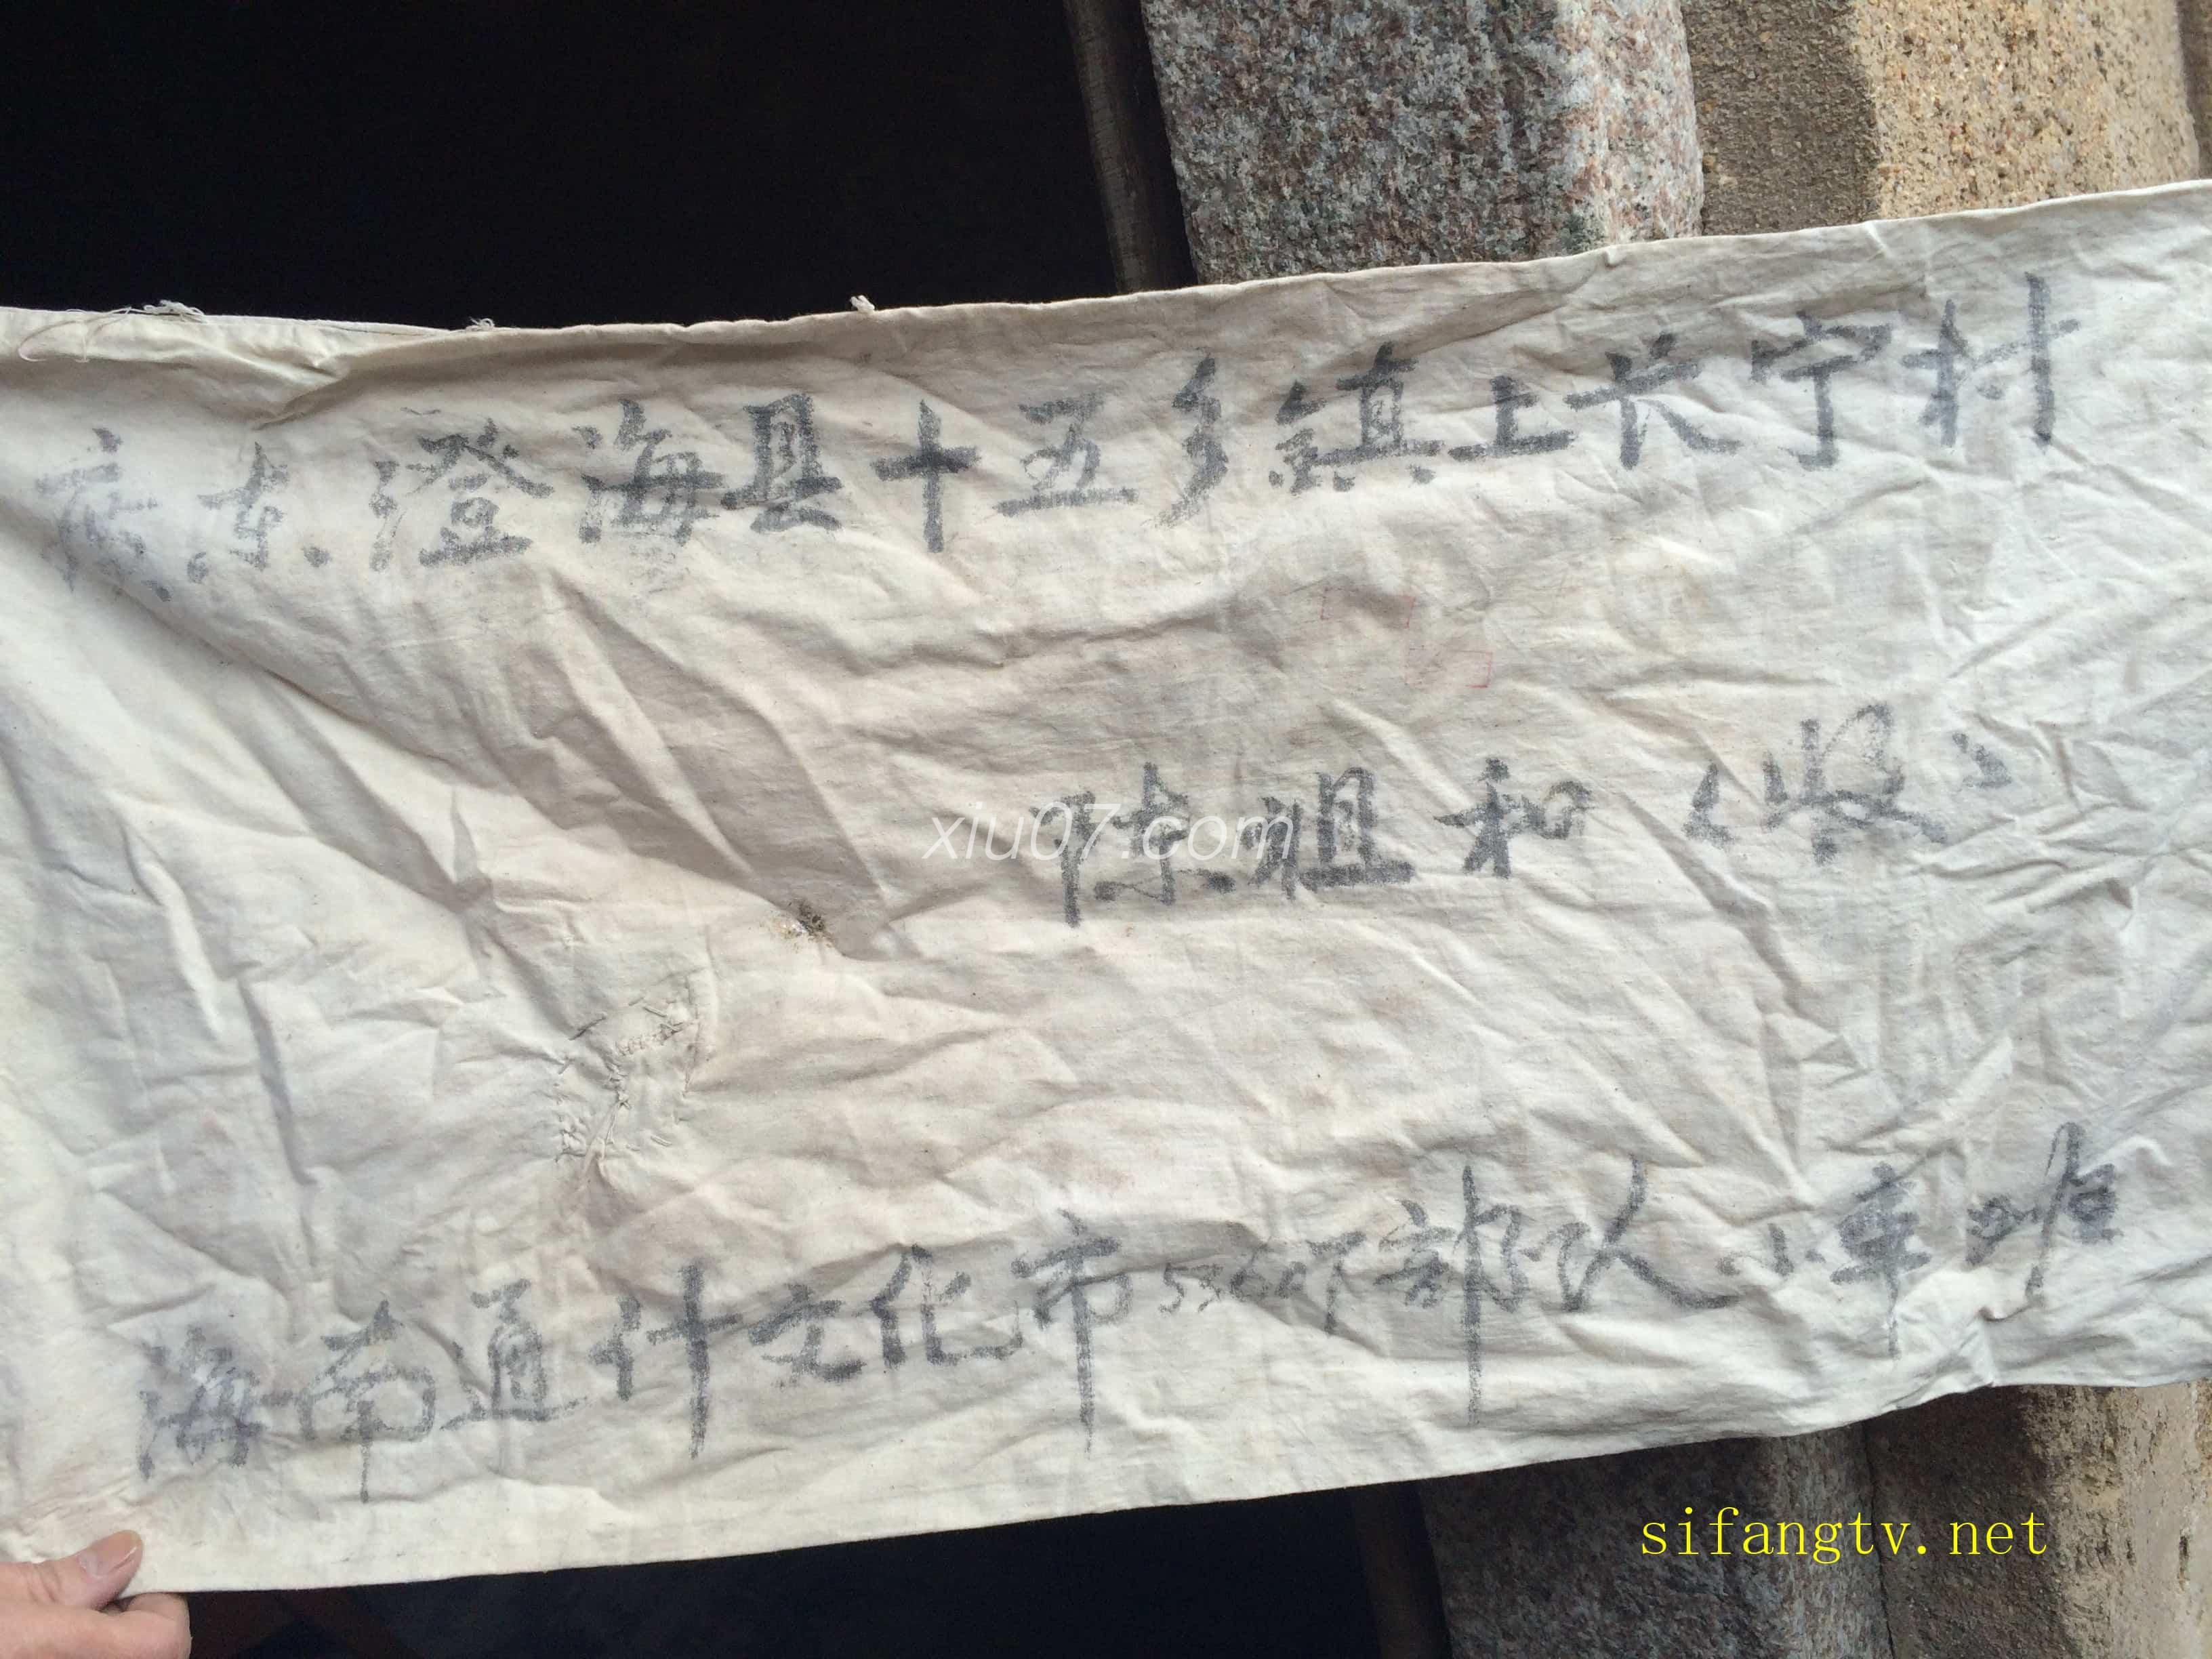 广东澄海县十五乡鎮上长宁村
xiu07.com
陈祖和（收）
海南通什文化市53607部队小车班
sifangtv.net